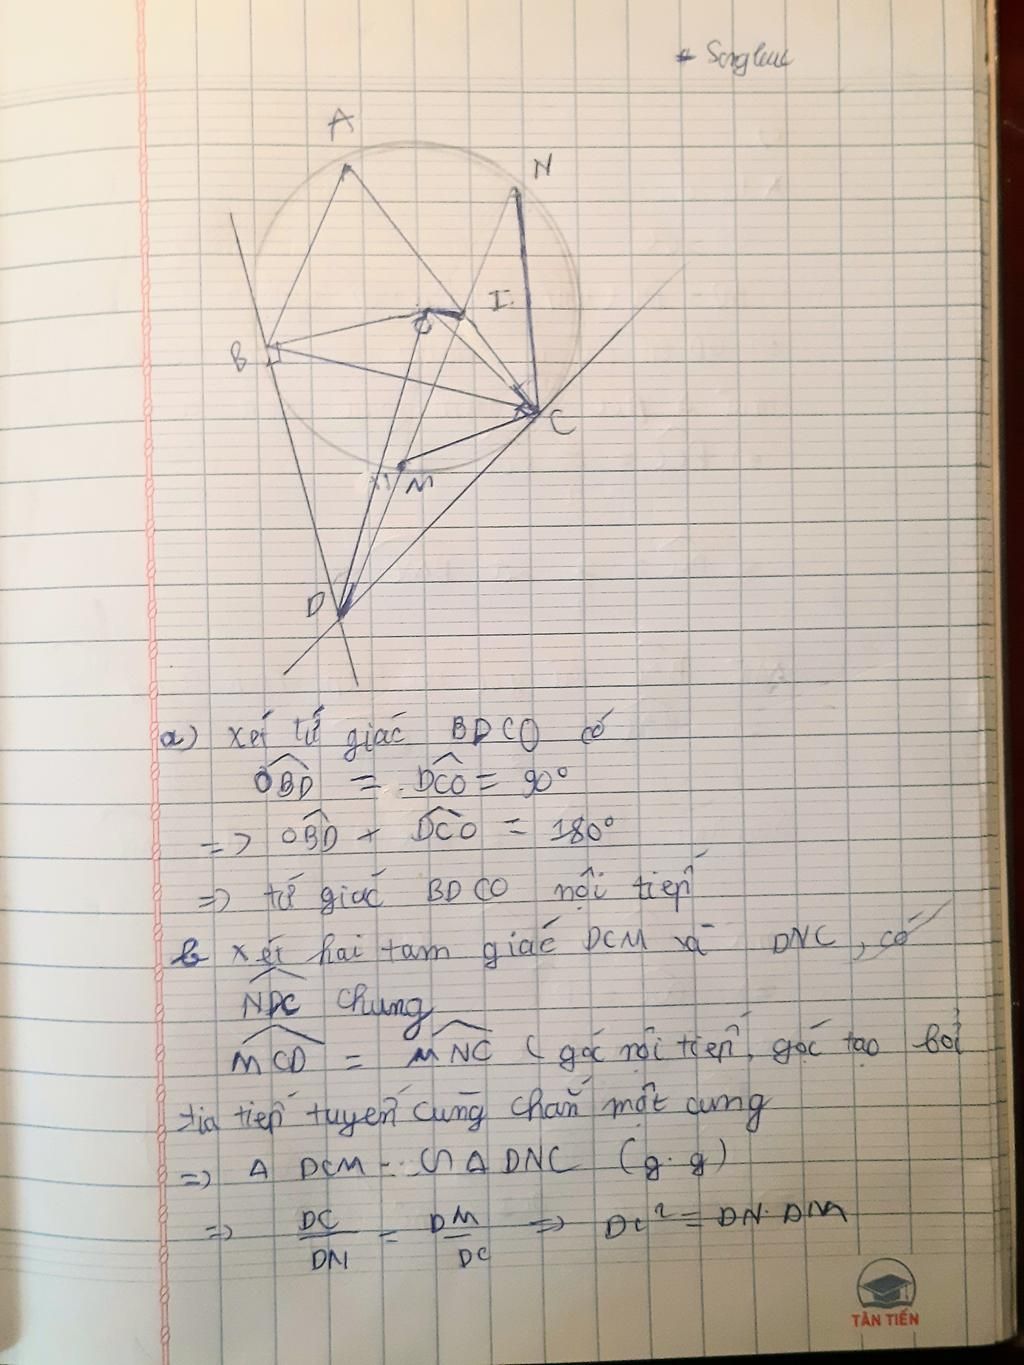 * Song
A
N
I
O
B
C
M
D
a) Xét tứ giác BDCO có
OBD = DCO = 90°
=> OBD + DCO = 180°
=> tứ giác BDCO nội tiếp
b Xét hai tam giác DCM và DNC, có
NDC chung
MCD = MNC (góc nội tiếp, góc tạo bởi
tia tiếp tuyến cùng chắn một cung
=> Δ DCM ∽ Δ DNC (g.g)
=> DC/DN = DM/DC => DC² = DN.DM
TÂN TIẾN